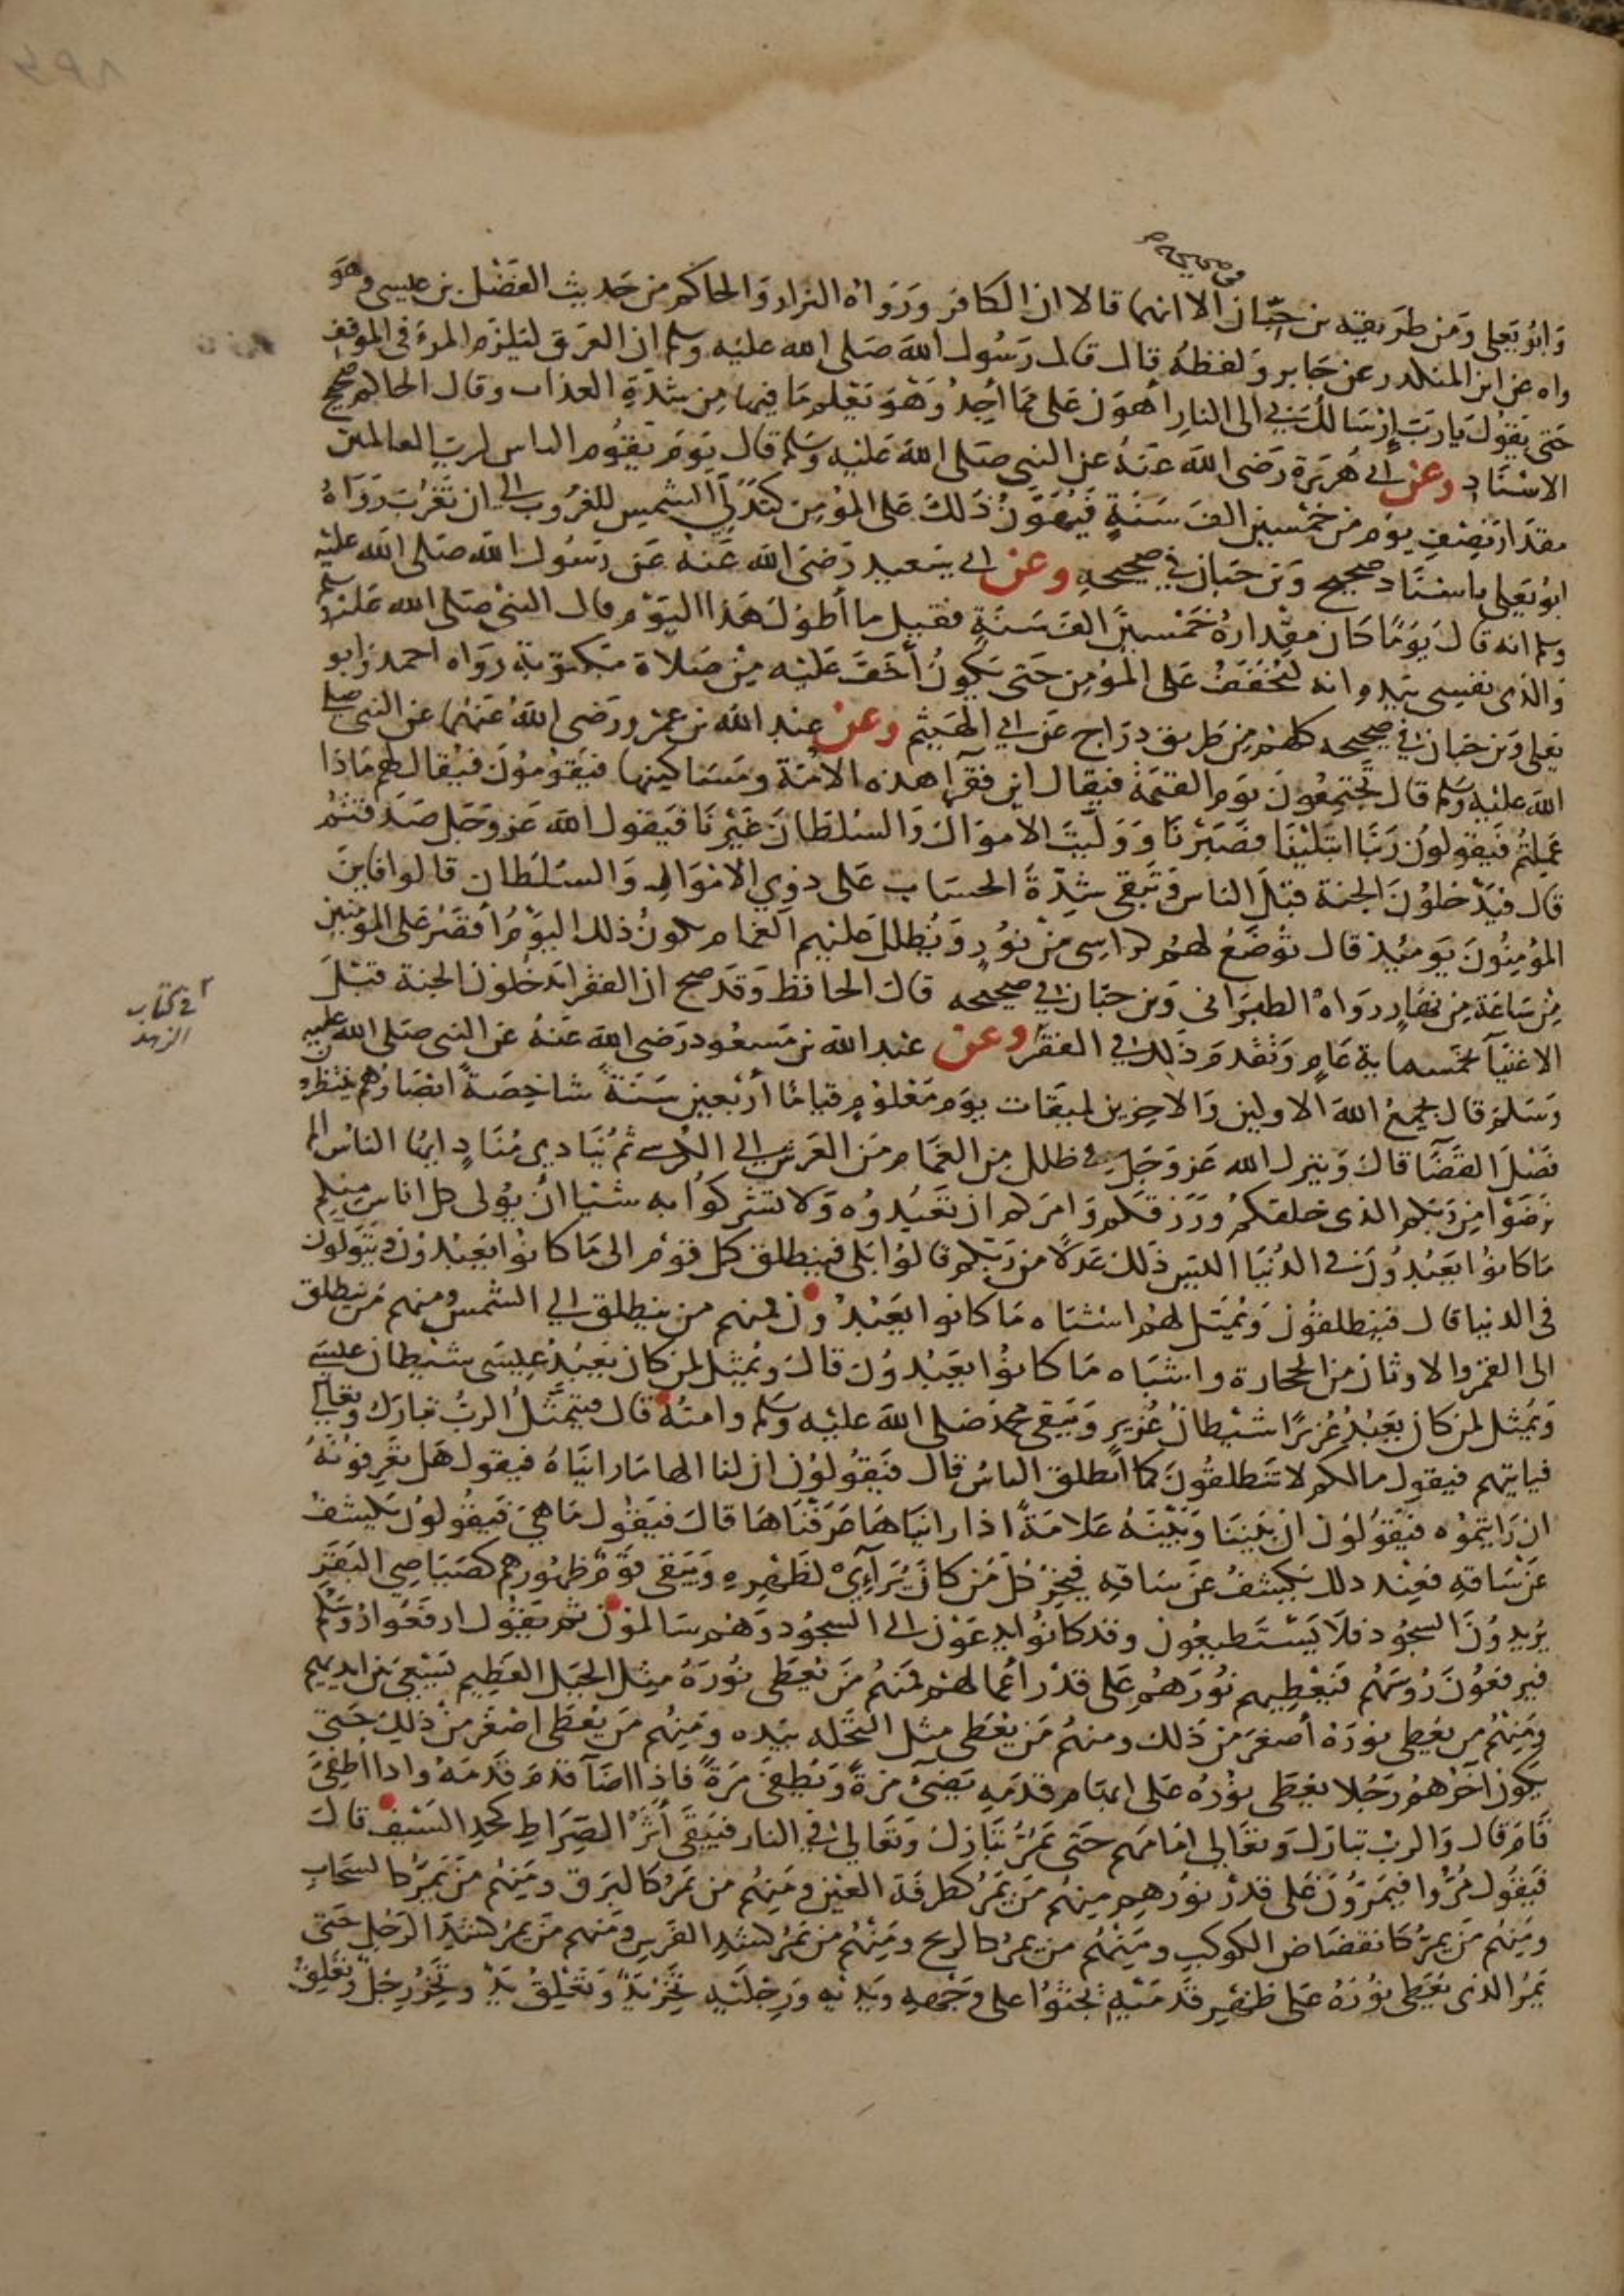 في صحيحه
وَابُو يَعلى وَمن طَريقه بن حِبّان الا انهما قالا ان الكافر وَرَوَاهُ البزار وَالحاكم من حَديث الفَضْل بن عيسى وهَو
واه عن ابن المنكدر عن جَابر وَلفظهُ قال قال رَسُول اللهَ صَلى الله عليْه وسلم ان العرَق لَيَلزَم المرءَ في الموقف
حَتى يَقوُل يَا رَبّ إِرْسَالكَ بي الى النارِ أهوَن عَلى مما أجِدُ وَهْوَ يَعْلم مَا فيها مِن شدّةِ العذاب وقال الحاكم صحيح
الاسْنَادِ وعن أبي هُرَيرَة رَضى اللهَ عَنهُ عن النبي صَلى اللهَ عَليْه وسَلم قال يَومَ يَقوُم الناس لرب العالمين
مقدَار نِصْفِ يوَم من خمْسين الفَ سَنَةٍ فَيُهَوَّنُ ذَلكَ عَلى المؤمِن كَتَدَلِّي الشمسِ للغُرُوب الى ان تَغْرُبَ رَوَاهُ
ابوُ يَعلى باسْنَاد صَحيح وَبن حبّان في صَحيحهِ وعن ابي سَعيد رَضىَ اللهَ عَنهُ عَن رَسُول اللهَ صَلى الله عليْه
وسلم انه قال يَوْمًا كان مقْدارهُ خَمْسينَ الفَ سَنَةٍ فقيل ما أطوَلَ هَذا اليَوْم فقال النبيُ صَلى الله عَليْه وسلم
وَالذي نفسِي بيَدِه انه ليُخَفَّفُ عَلى المؤمِن حَتى يَكونُ أخَفَّ عَليْه مِن صَلاة مَكتوبَة رَوَاه احمد وَابو
يَعلى وَبن حبّان في صَحيحه كلهمْ مِن طَريق درّاج عَن ابي الهَيْثم وعن عبْد اللهَ بن عمْرو رَضى اللهُ عَنهما عن النبي صلى
اللهَ عليْه وسَلم قال تجْتمعُونَ يوَم القيمَة فيقال اين فقرَا هذه الامّة ومَسَاكينها فيَقوُموُنَ فيُقال لهم مَاذَا
عَمِلتُم فيَقولونَ رَبّنا ابتَلَيْتَنَا فصَبَرْنَا وَوَلّيتَ الاموَالَ وَالسُلطَانَ غيْرَنَا فَيَقوُل اللهَ عَز وَجَل صَدقتُم
قال فيَدْخلوُنَ الجنة قبْلَ الناس وَتَبقى شِدّةَ الحسَاب عَلى ذوِي الامْوَال وَالسُلطَان قالوا فاين
المؤمنُونَ يَومئِذ قال توُضَعُ لهُم كراسِى مِنْ نوُرٍ وَيُظلل عَليْهم الغمَام يكونُ ذلك اليَوْمُ أقصَرَ على المؤمنين
مِنْ سَاعَةٍ مِن نهَارٍ رَوَاهُ الطبَرَاني وَبن حبّان في صَحيحه قال الحافظ وَقَد صح ان الفقرا يَدخُلونَ الجنة قبْلَ
الاغنيَا بخمسماية عَامٍ وَتقدمَ ذَلك في الفقر وعن عبْد الله بن مَسعُود رَضى اللهَ عَنهُ عَن النبى صَلى الله عليه
وَسَلم قال يجمعُ اللهَ الاولين وَالاخِرين لميقات يوَم مَعْلوُمٍ قيامًا أرْبَعين سَنَةً شاخِصَةً ابْصَارُهم ينتظرون
فَصْلَ القضَا قال وَينزل الله عَزّ وَجَل في ظلل مِن الغمَام من العَرش الى الكُرسى ثم يُنادي مُنَادٍ ايها الناسُ الم
تَرضَوْا مِن رَبّكم الذي خلقكم وَرَزقكم وَامرَكم ان تعْبُدوُه وَلا تشركوُا به شيْا انْ يوُلى كل اناسٍ منكم
مَا كانوُا يَعْبُدُونَ في الدُنيَا اليسَ ذَلك عَدلاً من رَبّكم قالوُا بَلى فينطلق كل قوْم الى مَا كانوُا يَعْبُدُونَ وَيَتَوَلوَن
في الدنيا قال فينطلقوُن وَيُمَثل لهُم اشبَاه مَا كانوا يَعْبُدُون فمنهم من ينطلق الى الشمس ومنهم مَن ينطلق
الى القمر والاوثان من الحجارة واشبَاه مَا كانوُا يَعْبُدوُنَ قال وَيُمثل لمن كان يَعْبُدُ عِيسَى شيْطان عيسَى
وَيُمثل لمن كان يَعبُدُ عُزيرًا شيْطانُ عُزيرٍ وَيَبقى محمد صَلى اللهَ عليْه وَسَلم وامتُهُ قال فيَتمَثَّلُ الربُ تبارَك وتعالى
فياتيهم فيقول مالكم لا تَنطلقُونَ كما انطلق الناسُ قال فيَقوُلوُن ان لنا الها مَا رايْنَاهُ فيقول هَل تعْرِفوُنَهُ
ان رَايتمُوْه فيَقوُلوُن ان بيْنَنا وَبَيْنَهُ عَلامَةً اذا رايْناهَا عَرَفْنَاهَا قال فيَقوُل مَا هيَ فيَقوُلوُن يَكشفُ
عَنْ سَاقهِ فعِنْد ذلك يَكشفُ عَن سَاقِهِ فيخِرُّ كل مَن كانَ يُرَآءِى لظَهْرِهِ وَيَبقى قَوْمٌ ظهوُرهم كصَيَاصِي البَقرِ
يُريدوُنَ السجُود فلا يَسْتَطيعُون وقد كانوُا يدعَوْن الى السجُود وَهُم سَالموُن ثم يَقوُل ارفعُوا رُؤسَكم
فيرفعُونَ رُؤسَهُم فَيُعْطِيهم نوُرَهُم عَلى قدْر أعْمالهُم فمنهُم مَن يُعْطَى نوُرَهُ مِثل الجبَل العَظِيم يَسْعَى بين ايديهم
ومَنْهُم من يُعطى نورَهُ أصغرَ مِن ذَلك ومنهمُ مَن يُعْطَى مثل النخْلة بيَده وَمِنْهُم مَن يُعْطَى اصْغَر مِنْ ذَلِكَ حَتى
يكون آخرُهُم رَجُلا يُعْطَى نوُرُهُ عَلى ابهَام قدَمِهِ يُضيُ مَرةً وَيُطفى مَرةً فاذا اضآ قدّمَ قَدَمَهُ واذا اطفِئَ
قامَ قال وَالربْ تبارَكَ وَتعَالى امَامَهم حَتى يَمُرَّ تبَارَكَ وَتعَالى في النار فيَبْقَى أثَرُ الصِّرَاطِ كحدِ السَيْفِ قال
فَيقوُل مُرُّوا فيَمُرّوُنَ عَلى قدْر نوُرهِم مِنهُم مَنْ يَمُرّ كطَرفَةِ العَيْن وَمِنهُم من يَمُرّ كالبَرَق ومَنِهُم مَنْ يَمُرّ كالسحَاب
ومَنِهُم مَنْ يمرّ كانقضَاض الكوكبِ ومَنِهُم من يمرُ كالريح ومَنِهُم من يَمرُّ كشدِ الفَرسِ وَمنهم مَنْ يَمرُ كشدِ الرَجُلِ حَتّى
يَمُرّ الذي يُعْطَى نوُرَهُ عَلى ظَهْرِ قَدَمَيْهِ يَحْثوُا على وَجْهِهِ وَيَدَيْهِ وَرِجْلَيْهِ تخِرُّ يَدٌ وَتَعْلَقُ يَدٌ وتخِرُّ رِجْلٌ وَتعْلقُ
في كتاب
الزهد